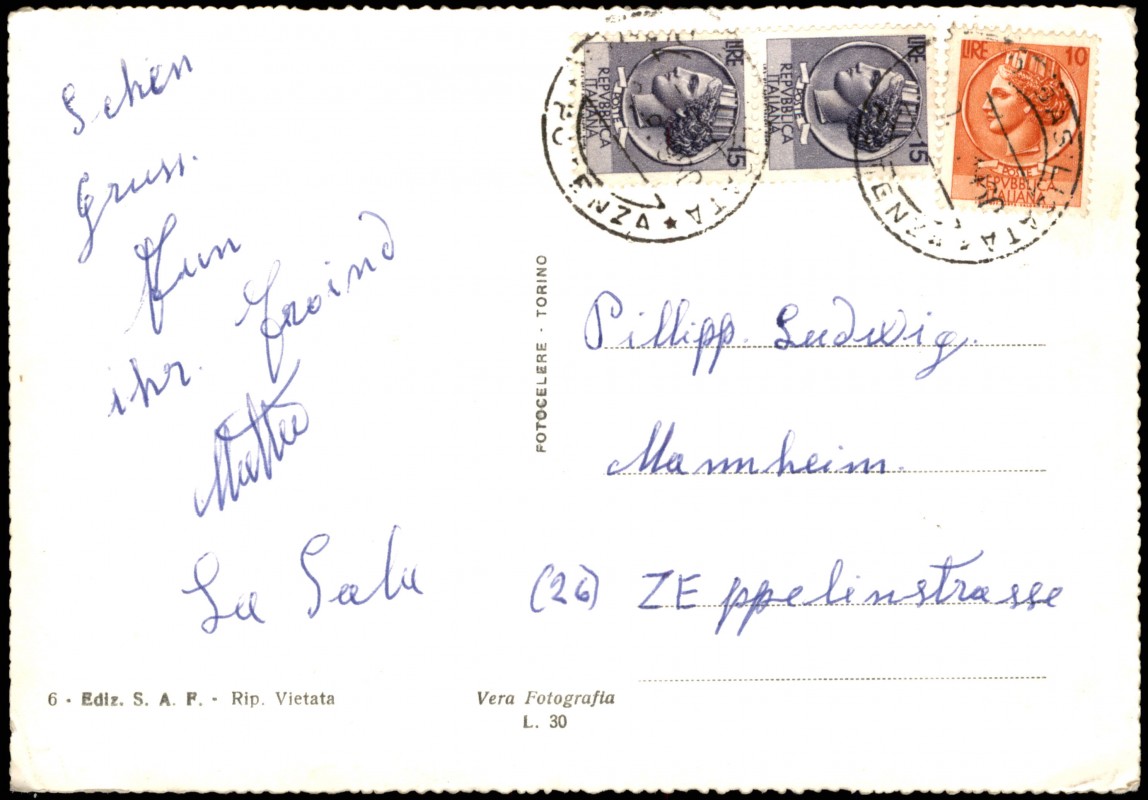 Schen
Gruss.
Fun
ihr. Froind
Matteo
La Sala
6 - Ediz. S. A. F. - Rip. Vietata
Vera Fotografia
L. 30
FOTOCELERE - TORINO
LIRE 15
REPVBBLICA
ITALIANA
LIRE 15
REPVBBLICA
ITALIANA
LIRE 10
POSTE
REPVBBLICA
ITALIANA
POTENZA
Pillipp. Ludwig.
Mannheim.
(26) ZEppelinstrasse